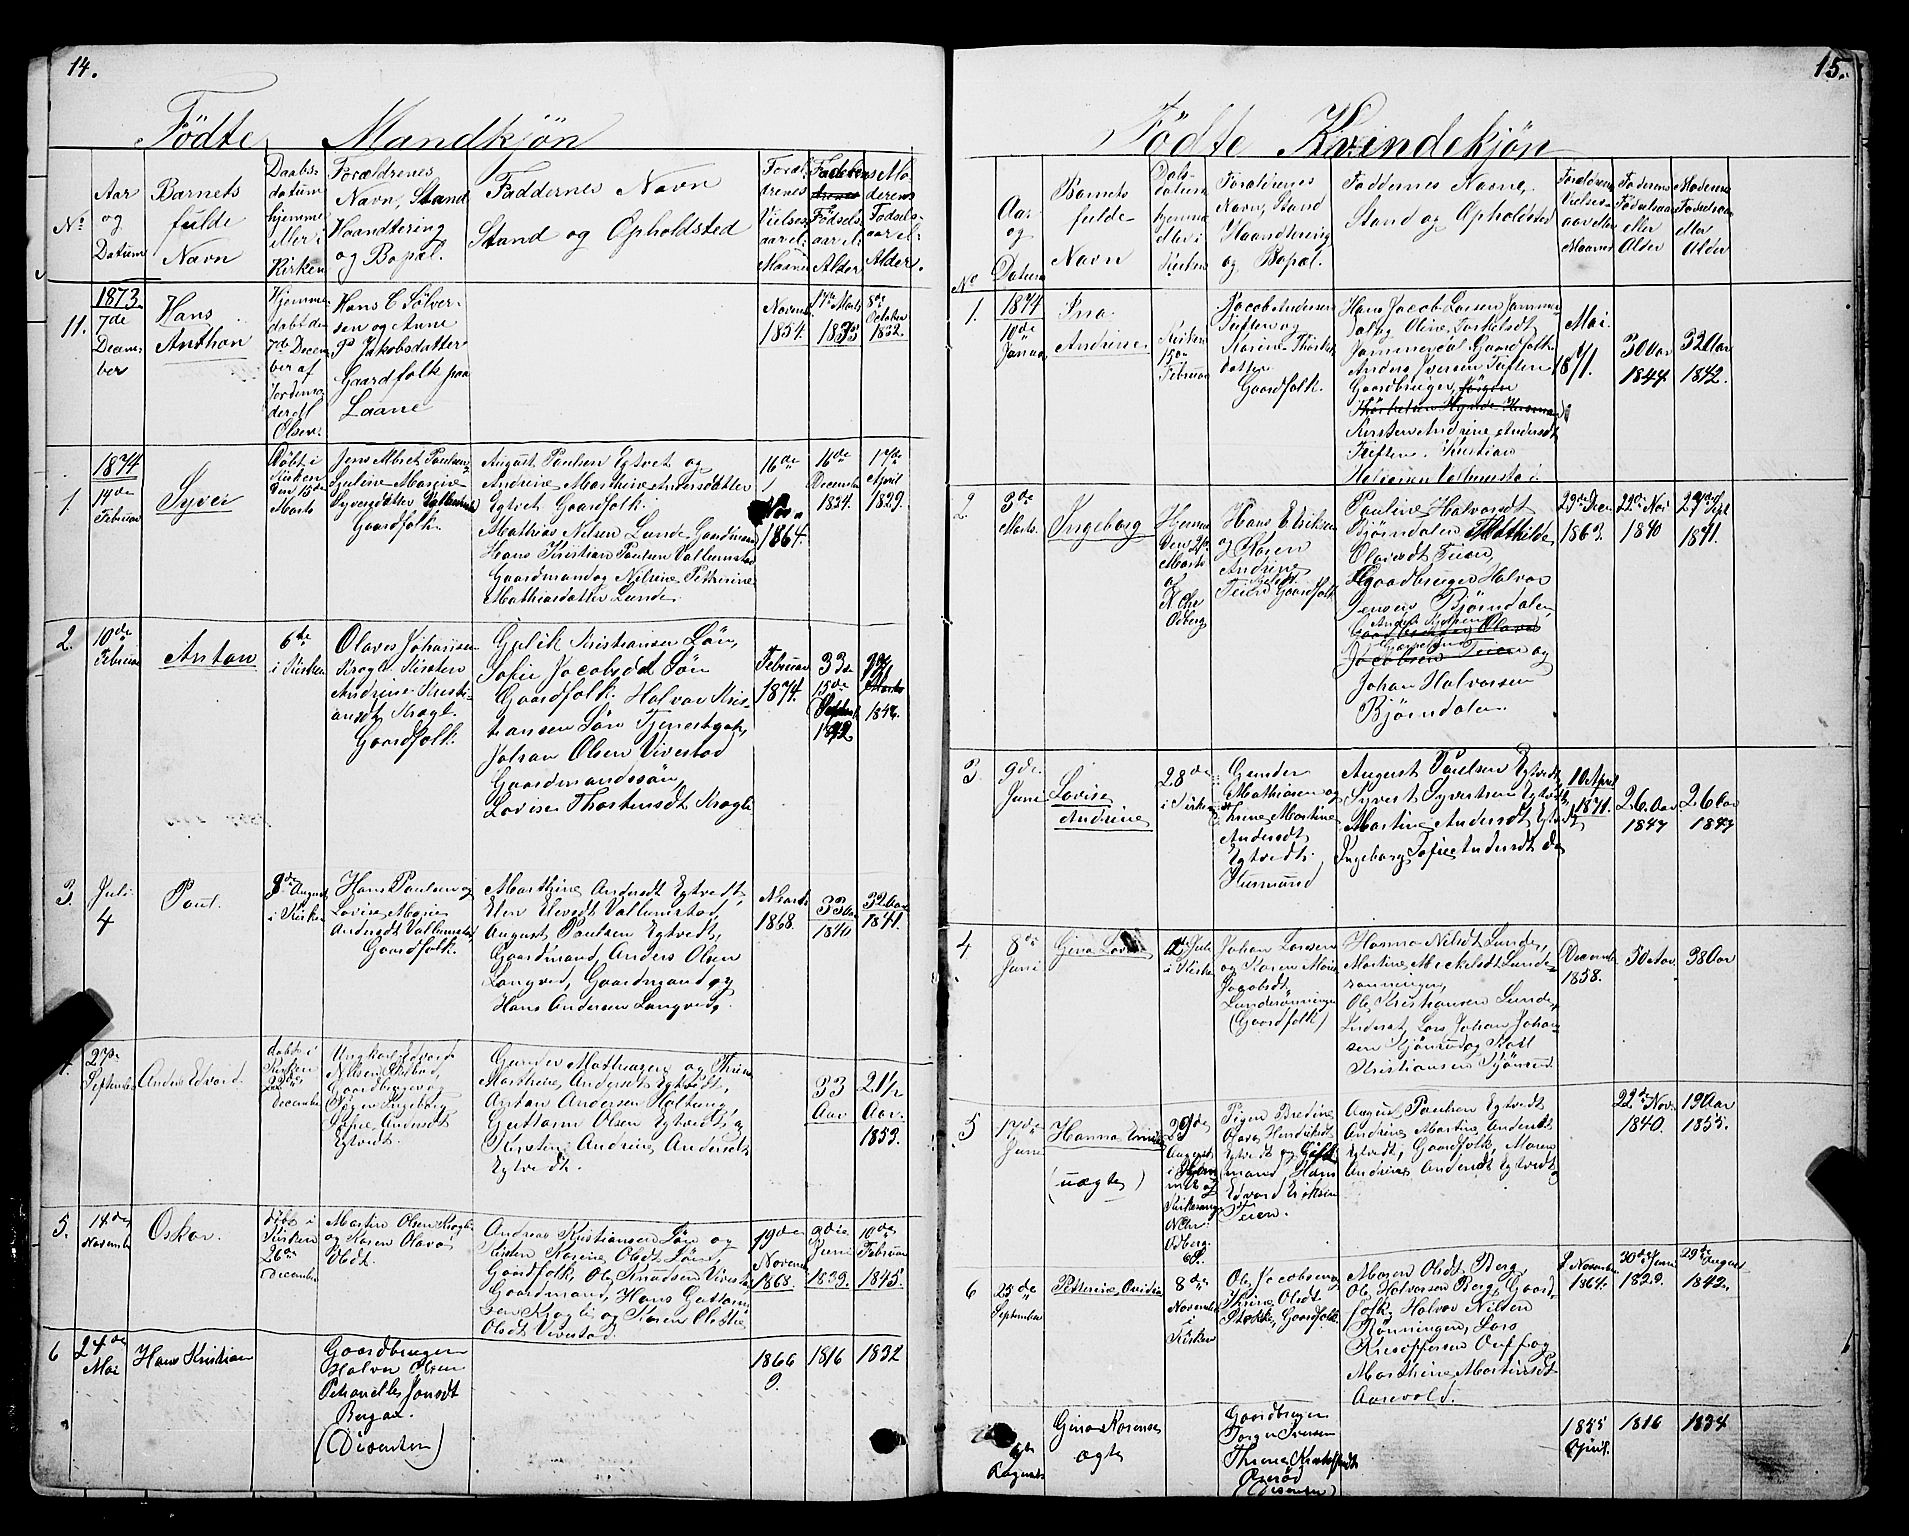 14.
Fødte Mandkjøn
No
Aar
og
Datum
Barnets
fulde
Navn
Daabs-
datum
hjemme
eller i
Kirken
Forældrenes
Navn, Stand
Haandtering
og Bopæl.
Faddernes Navn
Stand og Opholdsted
Foræl-
drenes
Vielses-
aar el.
Faderens
Fødsels
aar el.
Alder
Mo-
derens
Fødsels-
aar el.
Alder.
11.
1873
7de
Decem-
ber
Hans
Anthon
Hjemme
døbt den
7de Decem-
ber af
Jordemo-
der
Olsen
Hans C Sølver-
sen og Anne
P Jakobsdatter
Gaardfolk paa
Laane
Novemb
1854.
17de Marts
1833
8de
October
1832.
1.
1874
14de
Februar
Syver
Døbt i
Kirken
Den 15de
Marts
Jens Albret Paulsen
Syverdatter
Gaardfolk.
August Paulsen Egtvet og
Andrine Marthine Andersdatter
Egtvet Gaardfolk.
Mathias Nilsen Lunde Gaardmand
Hans Kristian Paulsen Vallumstad
Gaardmand og Nilsine Petterine
Mathiasdatter Lunde.
16de
1864.
16de
Decembr
1824.
17de
April
1829.
2.
10de
Februar
Anton
6te
i Kirken
Olaves Johansen
Krogh Kirsten
Andrine Kristi-
ansdt Krogh.
Gaardfolk.
Kristiansen Løn,
Sofie Jacobsdt Løn
Gaardfolk. Halvor Kris-
tiansen Løn Tjenestgut,
Johan Olsen Vivestad
Gaardmandssøn,
Lovise Thorstensdt Krogh
Februar
1874.
15de
Septem
1842
1846.
3.
Juli
4
Paul.
August
i Kirken
Hans Paulsen og
Lovise Marie
Andersdt Vallumstad
Gaardfolk.
Marthine Andersdt Egtvedt,
Elen Elevsdt Vallumstad,
August Paulsen Egtvedt,
Gaardmand, Anders Olsen
Langved, Gaardmand og
Hans Andersen Langved,
Marts
1868.
33 Aar
1840
32 Aar
1841.
4.
27de
September
Anders Edvard
døbt i
Kirken
December
Ungkarl Edvard
Nilsen
Gaardbruger og
Pigen Ingeborg
Sofie Andersdt
Egtvedt.
Gunder Mathiasen og Thrine
Marthine Andersdt Egtvedt,
Anton Andersen Holtung,
Guttorm Olsen Egtvedt, og
Kirsten Andrine Andersdt
Egtvedt.
33
Aar
21½
Aar.
1853.
5.
14de
Novemb
Oskar.
døbt i
Kirken
26de
December
Martin Olsen Krogh
og Karen Olava
Olsdt.
Andreas Kristiansen Løn og
Kirsten Karine Olsdt Løn,
Gaardfolk, Ole Knudsen Vivestad
Gaardmand, Hans Guttorm-
sen Krogh og Karen Oledie
Olsdt Vivestad.
19de
Novemb
1868.
9de
Juni
1839.
10de
Februar
1845.
6
24de
Mai
Hans Kristian
Gaardbrugeren
Halvor Olsen
Petranelle Jonsdt
Bergan.
(Disenter)
1866
1816
1832
15.
Fødte Kvindekjøn
No
Aar
og
Datum
Barnets
fulde
Navn
Forældrenes
Navn, Stand
Haandtering
og Bopæl.
Faddernes Navne,
Stand og Opholdsted
Forældrenes
Vielses-
aar eller
Faderens
Fødselsaar
eller
Alder
Moderens
Fødselsaar
eller
Alder
1.
1874
10de
Januar
Ina
Andrine
Kirken
15de
Februar
Jacob Andersen
Tuften og
Karine Thorkels-
datter
Gaardfolk.
Hans Jacob Larsen Jammer-
dal og Oline Torkelsdt
Jammerdal Gaardfolk
Anders Iversen Tuften
Gaardbruger,
Kirsten Andrine Andersdt
Tuften. Kristian
Mai.
1871.
30 Aar
1844
32 Aar
1842.
2.
3de
Marts.
Ingeborg
Marts
af
N Chr
Odberg
Hans Eriksen
og Karen
Andrine
Teien Gaardfolk
Pauline Halvorsdt
Bjørndalen Mathilde
Olavesdt Teien
Gaardbruger Halvor
Jensen Bjørndalen
Johan Halvorsen
Bjørndalen.
1863.
22de Nov
1840
1841.
3.
9de
Juni
Lovise
Andrine
28de
i Kirken
Gunder
Mathiasen og
Thrine Martine
Andersdt
Egtvedt.
Husmand
August Paulsen Egtvedt,
Syvert Syvertsen Egtvedt,
Martine Andersdt Egtvedt,
Ingeborg Sofie Andersdt do
10 April
1871.
26 Aar
1847
26 Aar
1847
4
8de
Juni
Gina
Juli
i Kirken
Johan Larsen
og Karen Marie
Jacobsdt
Lunderønningen
(Gaardfolk)
Hanna Nilsdt Lunde,
Martine Mickelsdt Lunde-
rønningen,
Ole Kristiansen Lunde-
Lars Johan Johan-
sen
Kristiansen
Decemb
1858.
30 Aar.
38 Aar
5
17de
Juni
Hanna
(uægte)
29de
August
Odberg
Pigen Bredine
Olava Hendriksdt
Egtvedt og Gift
mand Hans
Edvard Eriksen
Teien.
August Paulsen Egtvedt
Andrine Martine Andersdt
Egtvedt, Gaardfolk, Maren
Andrine Andersdt Egtvedt
22de Nov.
1840.
19 Aar
1855.
6
25de
September
Petterine
8de
November
i
Kirken
Ole Jacobsen og
Thrine Olsdt
Stokke, Gaardfolk.
Maren Olsdt Berg,
Ole Halvorsen Berg, Gaard-
folk, Halvor Nilsen
Rønningen, Lars
Kristoffersen og
Marthine Martinsdt
Aarevold.
November
1864.
30de Juni
1829.
29de August
1842.
August
Gina Karense
ægte
Gaardbruger
Torger Iversen
Thrine
(Disenter)
1855
April.
1816
1834